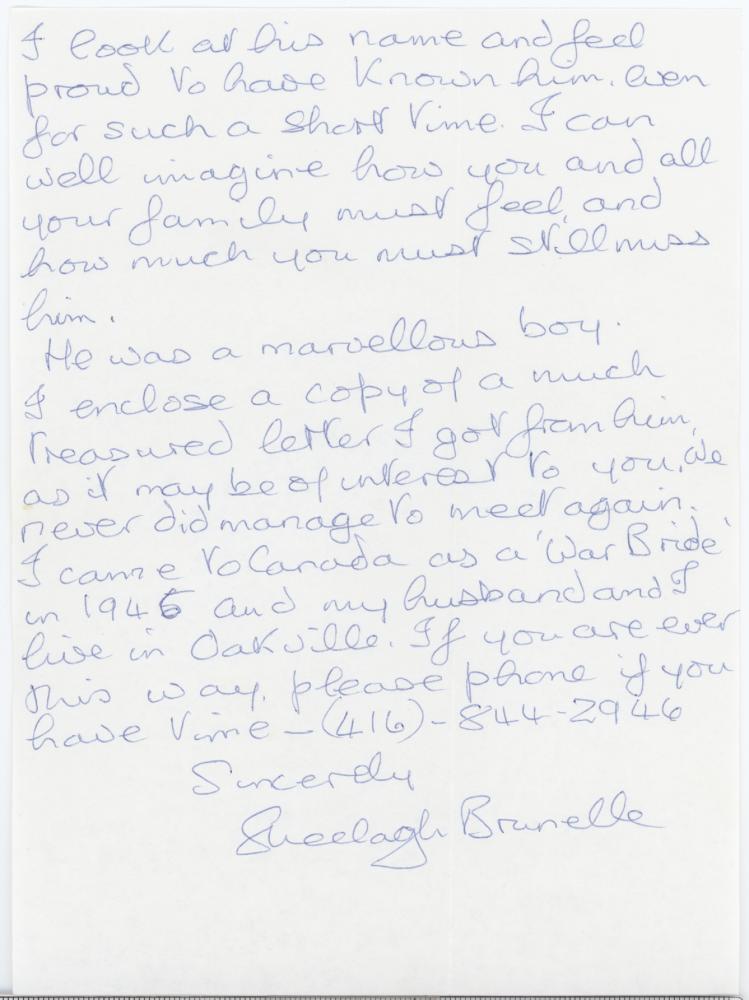 I look at his name and feel
proud to have known him, even
for such a short time. I can
well imagine how you and all
your family must feel, and
how much you must still miss
him.
He was a marvellous boy.
I enclose a copy of a much
treasured letter I got from him,
as it may be of interest to you. We
never did manage to meet again.
I came to Canada as a 'War Bride'
in 1946 and my husband and I
live in Oakville. If you are ever
this way, please phone if you
have time – (416) - 844-2946
Sincerely
Sheelagh Brunelle